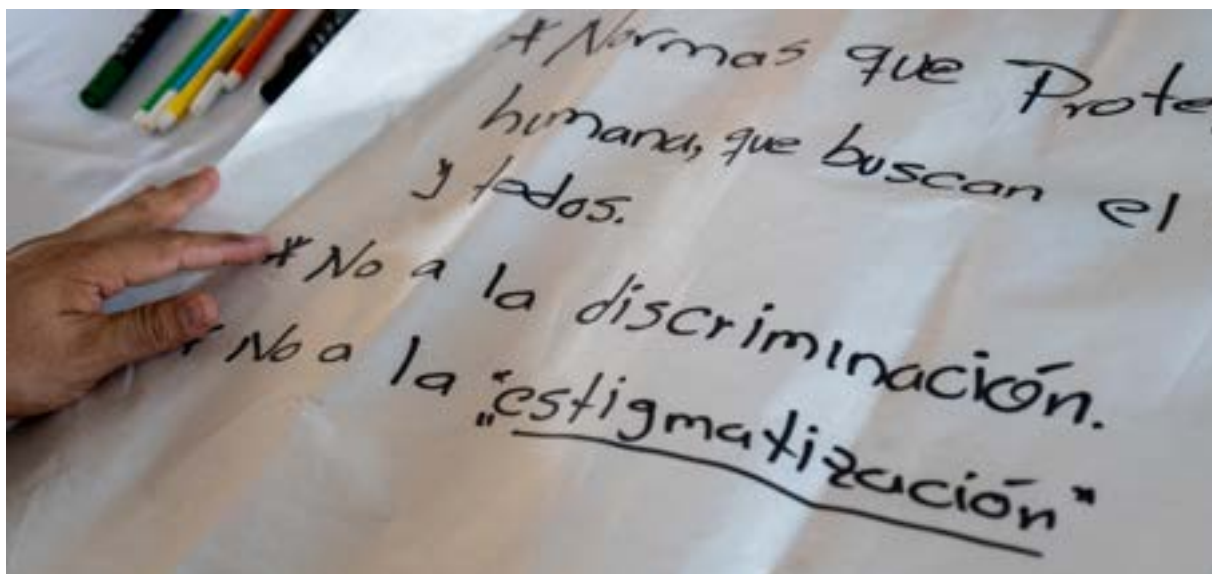 * Normas que Prote
humana, que buscan el
y todos.
* No a la discriminación.
* No a la "estigmatización"